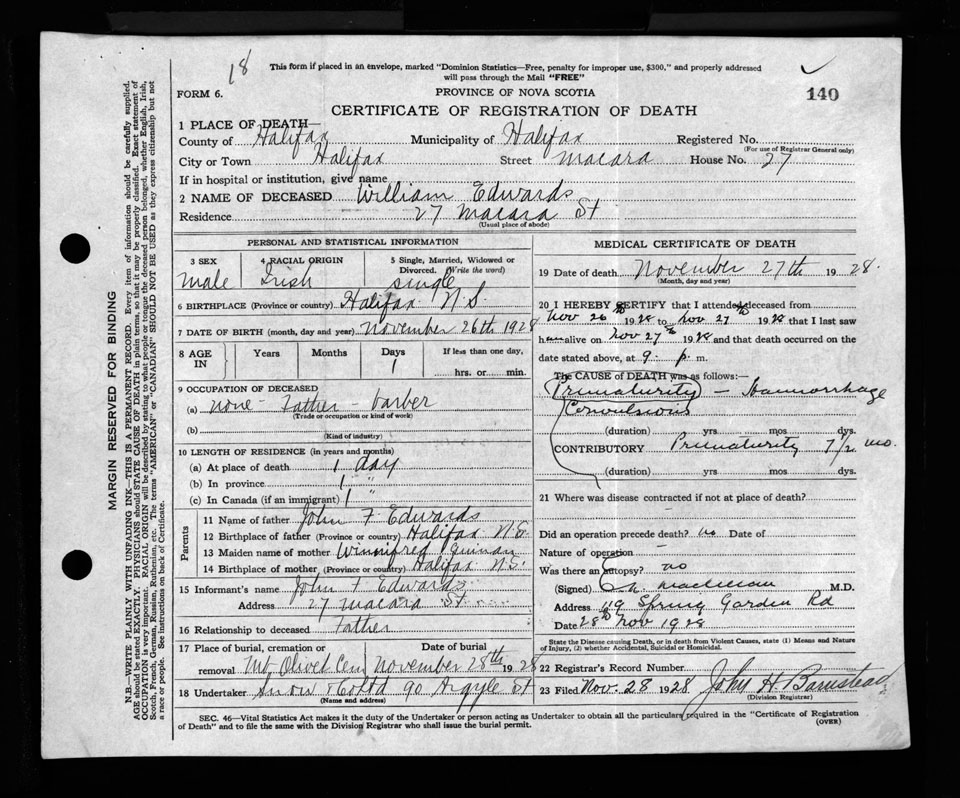 18
This form if placed in an envelope, marked "Dominion Statistics—Free, penalty for improper use, $300," and properly addressed
will pass through the Mail "FREE"
FORM 6.
PROVINCE OF NOVA SCOTIA
140
CERTIFICATE OF REGISTRATION OF DEATH
1 PLACE OF DEATH—
County of Halifax Municipality of Halifax Registered No.
(For use of Registrar General only)
City or Town Halifax Street Macara House No. 27
If in hospital or institution, give name
2 NAME OF DECEASED William Edwards
Residence 27 Macara St
(Usual place of abode)
PERSONAL AND STATISTICAL INFORMATION
3 SEX 4 RACIAL ORIGIN 5 Single, Married, Widowed or
Divorced. (Write the word)
male Irish single
6 BIRTHPLACE (Province or country) Halifax N.S.
7 DATE OF BIRTH (month, day and year) November 26th 1928
8 AGE IN Years Months Days If less than one day,
1 hrs. or min.
9 OCCUPATION OF DECEASED
(a) none - Father - barber
(Trade or occupation or kind of work)
(b)
(Kind of industry)
10 LENGTH OF RESIDENCE (in years and months)
(a) At place of death 1 day
(b) In province 1 "
(c) In Canada (if an immigrant) 1
Parents
11 Name of father John F Edwards
12 Birthplace of father (Province or country) Halifax N.S.
13 Maiden name of mother Winnifred
14 Birthplace of mother (Province or country) Halifax N.S.
15 Informant's name John F Edwards
Address 27 Macara St
16 Relationship to deceased Father
17 Place of burial, cremation or Date of burial
removal Mt Olivet Cem November 28th 1928
18 Undertaker Snow & Co Ltd 90 Argyle St
(Name and address)
MEDICAL CERTIFICATE OF DEATH
19 Date of death November 27th 1928.
(Month, day and year)
20 I HEREBY CERTIFY that I attended deceased from
Nov 26th 1928 to Nov 27th 1928 that I last saw
h alive on Nov 27th 1928 and that death occurred on the
date stated above, at 9 p. m.
The CAUSE of DEATH was as follows:—
Prematurity — Haemorrhage
Convulsions
(duration) yrs mos dys.
CONTRIBUTORY Prematurity 7 1/2 mo.
(duration) yrs. mos dys.
21 Where was disease contracted if not at place of death?
Did an operation precede death? no Date of
Nature of operation —
Was there an autopsy? no
(Signed) M.D.
Address 119 Spring Garden Rd
Date 28th Nov 1928
State the Disease causing Death, or in death from Violent Causes, state (1) Means and Nature
of Injury, (2) whether Accidental, Suicidal or Homicidal.
22 Registrar's Record Number
23 Filed Nov. 28 1928 John H Barnstead
(Division Registrar)
SEC. 46—Vital Statistics Act makes it the duty of the Undertaker or person acting as Undertaker to obtain all the particulars required in the "Certificate of Registration
of Death" and to file the same with the Division Registrar who shall issue the burial permit. (OVER)
MARGIN RESERVED FOR BINDING
N.B.—WRITE PLAINLY WITH UNFADING INK—THIS IS A PERMANENT RECORD. Every item of information should be carefully supplied.
AGE should be stated EXACTLY. PHYSICIANS should STATE CAUSE OF DEATH in plain terms, so that it may be properly classified. Exact statement of
OCCUPATION is very important. RACIAL ORIGIN will be described by stating to what people or tongue the deceased person belonged, whether English, Irish,
Scotch, French, German, Russian, Ruthenian, etc. The terms "AMERICAN" or "CANADIAN" SHOULD NOT BE USED as they express citizenship but not
a race or people. See instructions on back of Certificate.